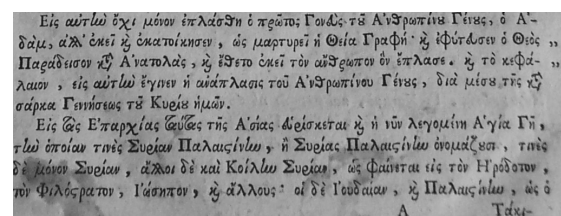 Εἰς αὐτὴν ὄχι μόνον ἐπλάσθη ὁ πρῶτος Γονεὺς τοῦ Ἀνθρωπίνου Γένους, ὁ Ἀ-
δὰμ, ἀλλ' ἐκεῖ καὶ ἐκατοίκησεν, ὡς μαρτυρεῖ ἡ Θεία Γραφή· καὶ ἐφύτευσεν ὁ Θεὸς „
Παράδεισον κατ' Ἀνατολὰς, καὶ ἔθετο ἐκεῖ τὸν ἄνθρωπον ὃν ἔπλασε. καὶ τὸ κεφά- „
λαιον, εἰς αὐτὴν ἔγινεν ἡ ἀνάπλασις τοῦ Ἀνθρωπίνου Γένους, διὰ μέσου τῆς κατὰ
σάρκα Γεννήσεως τοῦ Κυρίου ἡμῶν.
Εἰς τὰς Ἐπαρχίας ταύτας τῆς Ἀσίας εὑρίσκεται καὶ ἡ νῦν λεγομένη Ἁγία Γῆ,
τὴν ὁποίαν τινὲς Συρίαν Παλαιςίνην, ἢ Συρίας Παλαιςίνην ὀνομάζουσι, τινὲς
δὲ μόνον Συρίαν, ἄλλοι δὲ καὶ Κοίλην Συρίαν, ὡς φαίνεται εἰς τὸν Ἡρόδοτον,
τὸν Φιλόςρατον, Ἰώσηπον, καὶ ἄλλους· οἱ δὲ Ἰουδαίαν, καὶ Παλαιςίνην, ὡς ὁ
Α Τάκι-